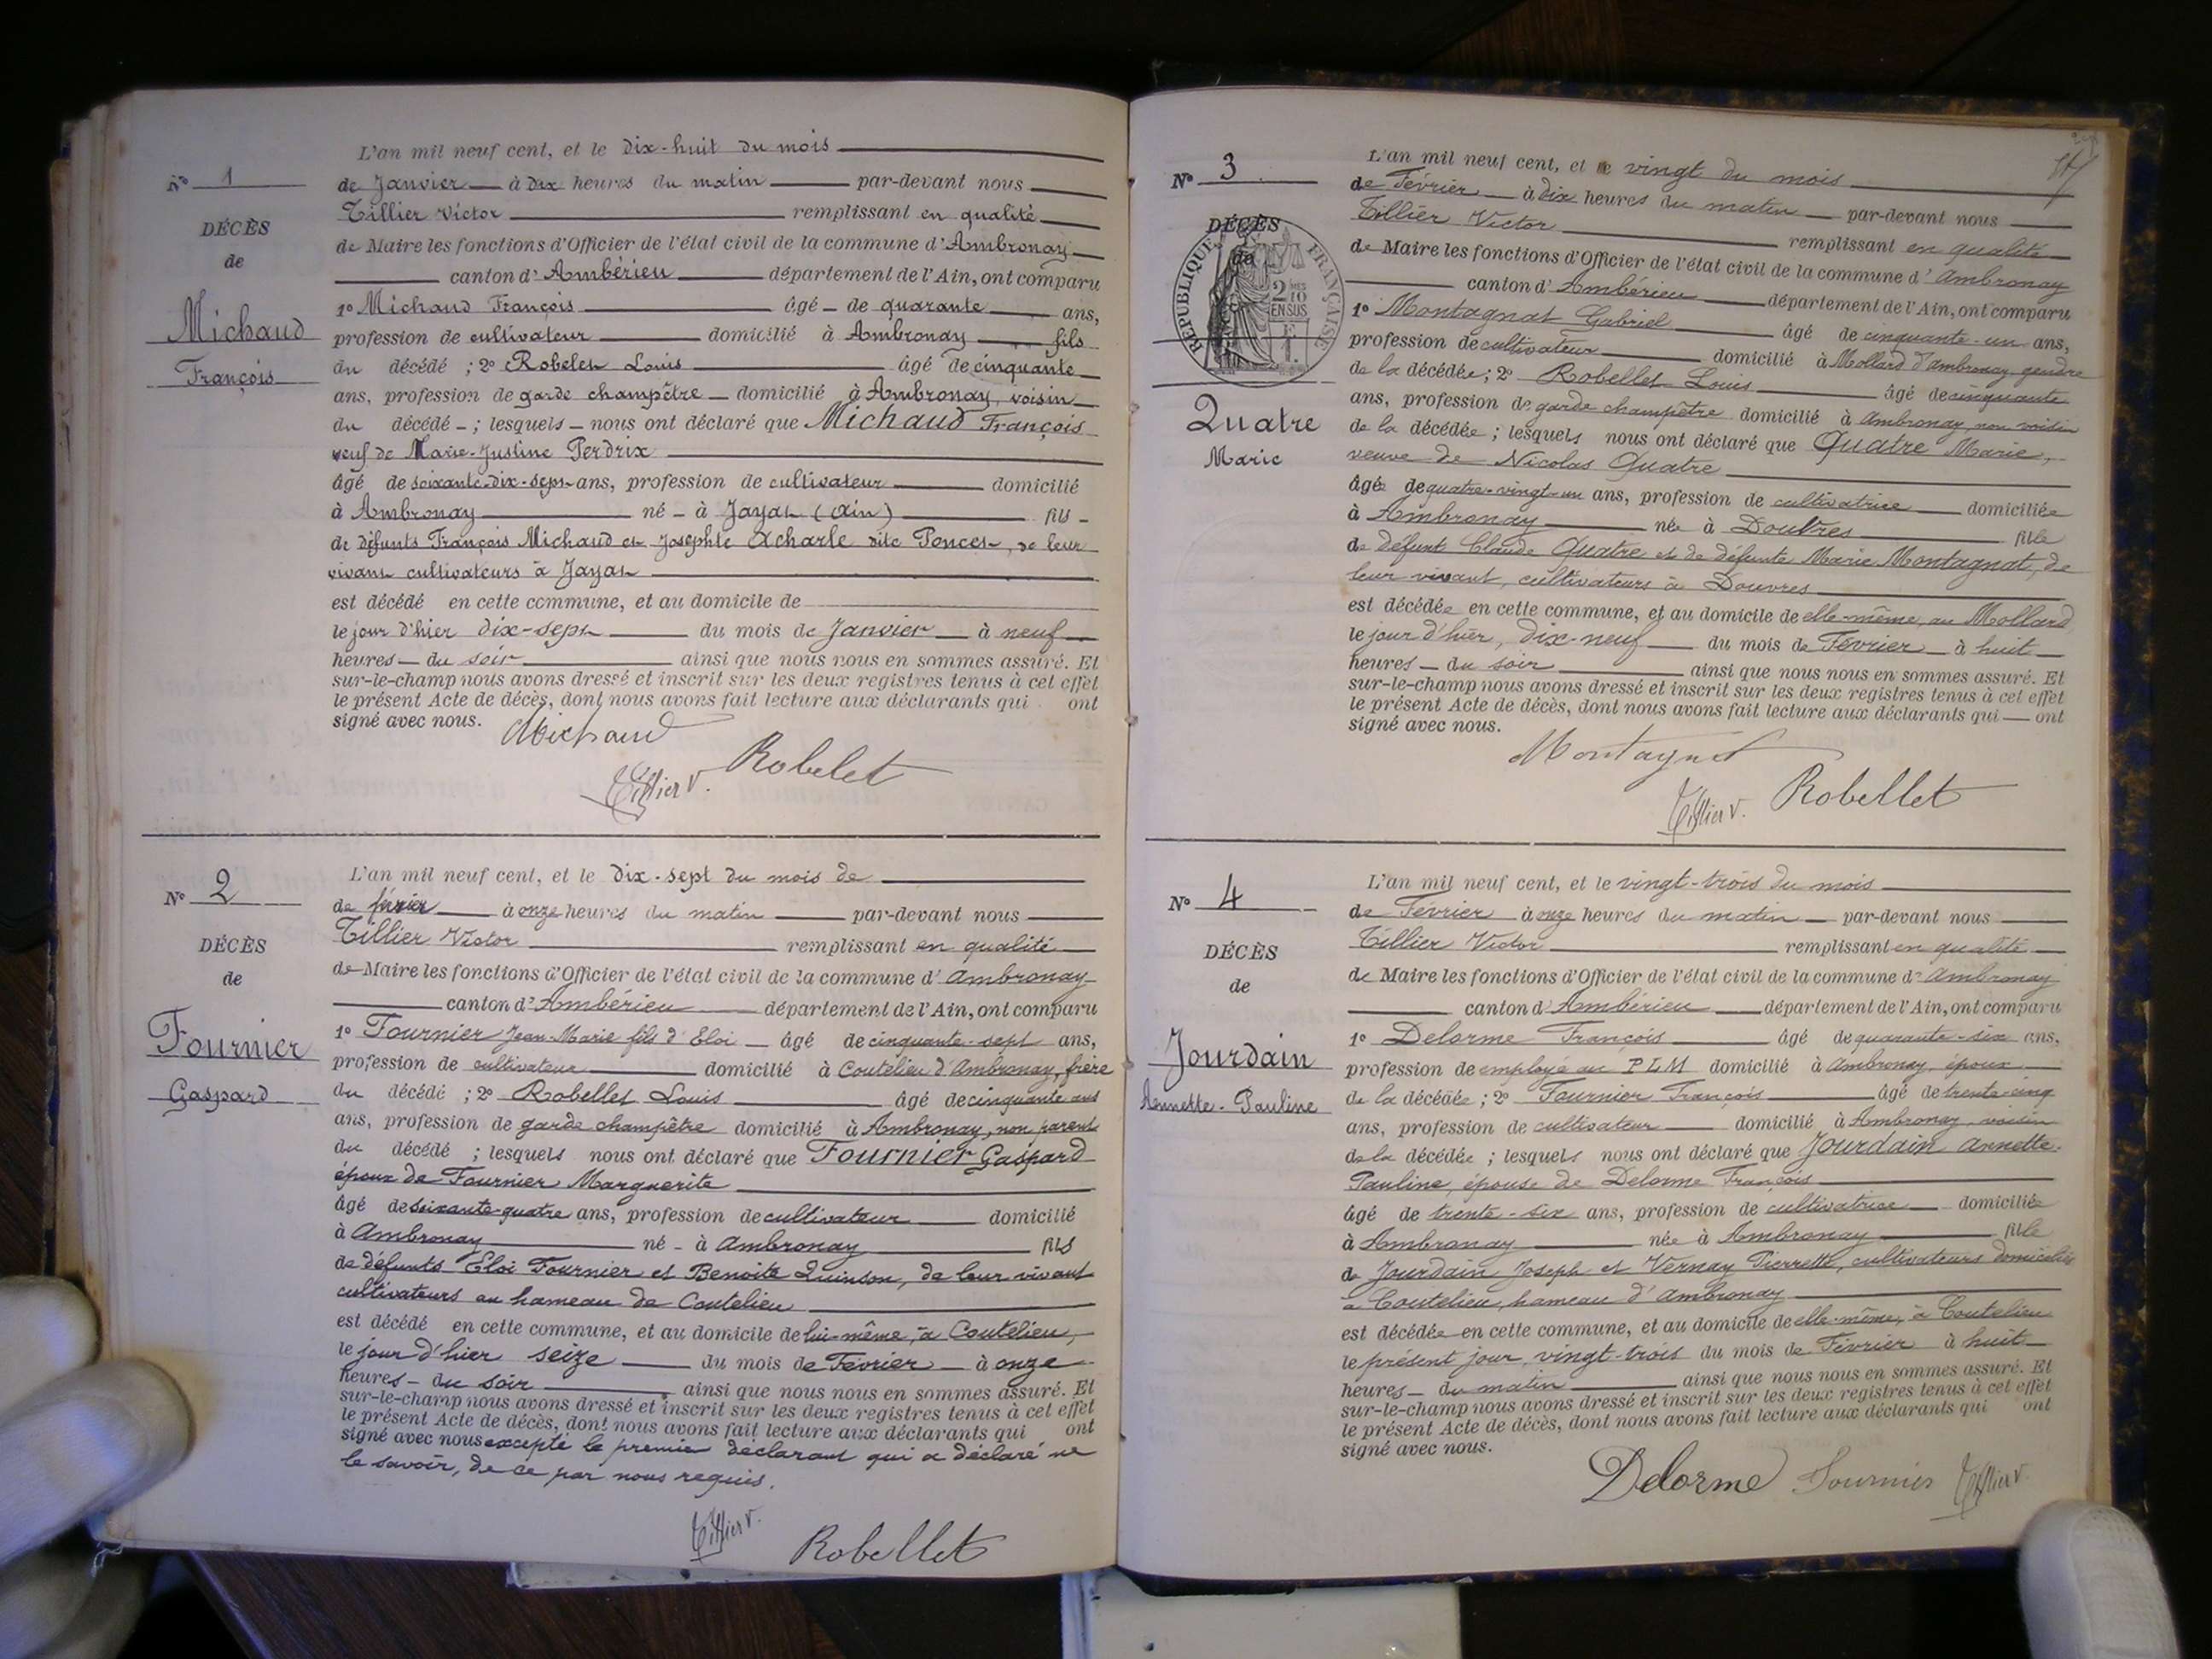 L'an mil neuf cent, et le dix-huit du mois
N° 1
de Janvier à dix heures du matin par-devant nous
Tillier Victor remplissant en qualité
DÉCÈS
de Maire les fonctions d'Officier de l'état civil de la commune d'Ambronay
de
canton d'Ambérieu département de l'Ain, ont comparu
1° Michaud François âgé de quarante ans,
Michaud
profession de cultivateur domicilié à Ambronay fils
François
du décédé ; 2° Robelet Louis âgé de cinquante
ans, profession de garde champêtre domicilié à Ambronay, voisin
du décédé ; lesquels nous ont déclaré que Michaud François
veuf de Marie-Justine Perdrix
âgé de soixante-dix-sept ans, profession de cultivateur domicilié
à Ambronay né à Jayat (Ain) fils
de défunts François Michaud et Josephte Acharle dite Poncet, de leur
vivant cultivateurs à Jayat
est décédé en cette commune, et au domicile de
le jour d'hier dix-sept du mois de Janvier à neuf
heures du soir ainsi que nous nous en sommes assuré. Et
sur-le-champ nous avons dressé et inscrit sur les deux registres tenus à cet effet
le présent Acte de décès, dont nous avons fait lecture aux déclarants qui ont
signé avec nous.
Michaud
Robelet
Tillier V.
L'an mil neuf cent, et le dix-sept du mois de
N° 2
de février à onze heures du matin par-devant nous
Tillier Victor remplissant en qualité
DÉCÈS
de Maire les fonctions d'Officier de l'état civil de la commune d'Ambronay
de
canton d'Ambérieu département de l'Ain, ont comparu
1° Fournier Jean-Marie fils d'Eloi âgé de cinquante-sept ans,
Fournier
profession de cultivateur domicilié à Coutelieu d'Ambronay, frère
Gaspard
du décédé ; 2° Robellet Louis âgé de cinquante ans
ans, profession de garde champêtre domicilié à Ambronay, non parent
du décédé ; lesquels nous ont déclaré que Fournier Gaspard
époux de Fournier Marguerite
âgé de soixante-quatre ans, profession de cultivateur domicilié
à Ambronay né à Ambronay fils
de défunts Eloi Fournier et Benoite Quinson, de leur vivant
cultivateurs au hameau de Coutelieu
est décédé en cette commune, et au domicile de lui-même, à Coutelieu,
le jour d'hier seize du mois de Février à onze
heures du soir ainsi que nous nous en sommes assuré. Et
sur-le-champ nous avons dressé et inscrit sur les deux registres tenus à cet effet
le présent Acte de décès, dont nous avons fait lecture aux déclarants qui ont
signé avec nous excepté le premier déclarant qui a déclaré ne
le savoir, de ce par nous requis.
Tillier V.
Robellet
L'an mil neuf cent, et le vingt du mois
N° 3
de Février à dix heures du matin par-devant nous
Tillier Victor remplissant en qualité
DÉCÈS
de
RÉPUBLIQUE FRANÇAISE
2 MES
10
EN SUS
de Maire les fonctions d'Officier de l'état civil de la commune d'Ambronay
canton d'Ambérieu département de l'Ain, ont comparu
1° Montagnat Gabriel âgé de cinquante-un ans,
profession de cultivateur domicilié à Mollard d'Ambronay gendre
de la décédée ; 2° Robellet Louis âgé de cinquante
ans, profession de garde champêtre domicilié à Ambronay, non voisin
Quatre
de la décédée ; lesquels nous ont déclaré que Quatre Marie,
Marie
veuve de Nicolas Quatre
âgée de quatre-vingt-un ans, profession de cultivatrice domiciliée
à Ambronay née à Douvres fille
de défunt Claude Quatre et de défunte Marie Montagnat, de
leur vivant, cultivateurs à Douvres
est décédée en cette commune, et au domicile de elle-même, au Mollard
le jour d'hier, dix-neuf du mois de Février à huit
heures du soir ainsi que nous nous en sommes assuré. Et
sur-le-champ nous avons dressé et inscrit sur les deux registres tenus à cet effet
le présent Acte de décès, dont nous avons fait lecture aux déclarants qui ont
signé avec nous.
Montagnat
Tillier V.
Robellet
L'an mil neuf cent, et le vingt-trois du mois
N° 4
de Février à onze heures du matin par-devant nous
Tillier Victor remplissant en qualité
DÉCÈS
de Maire les fonctions d'Officier de l'état civil de la commune d'Ambronay
de
canton d'Ambérieu département de l'Ain, ont comparu
1° Delorme François âgé de quarante-six ans,
Jourdain
profession de employé au PLM domicilié à Ambronay, époux
Annette-Pauline
de la décédée ; 2° Fournier François âgé de trente-cinq
ans, profession de cultivateur domicilié à Ambronay, voisin
de la décédée ; lesquels nous ont déclaré que Jourdain Annette-
Pauline, épouse de Delorme François
âgé de trente-six ans, profession de cultivatrice domiciliée
à Ambronay née à Ambronay fille
de Jourdain Joseph et Vernay Pierrette, cultivateurs domiciliés
à Coutelieu, hameau d'Ambronay
est décédée en cette commune, et au domicile de elle-même, à Coutelieu
le présent jour, vingt-trois du mois de Février à huit
heures du matin ainsi que nous nous en sommes assuré. Et
sur-le-champ nous avons dressé et inscrit sur les deux registres tenus à cet effet
le présent Acte de décès, dont nous avons fait lecture aux déclarants qui ont
signé avec nous.
Delorme Fournier Tillier V.